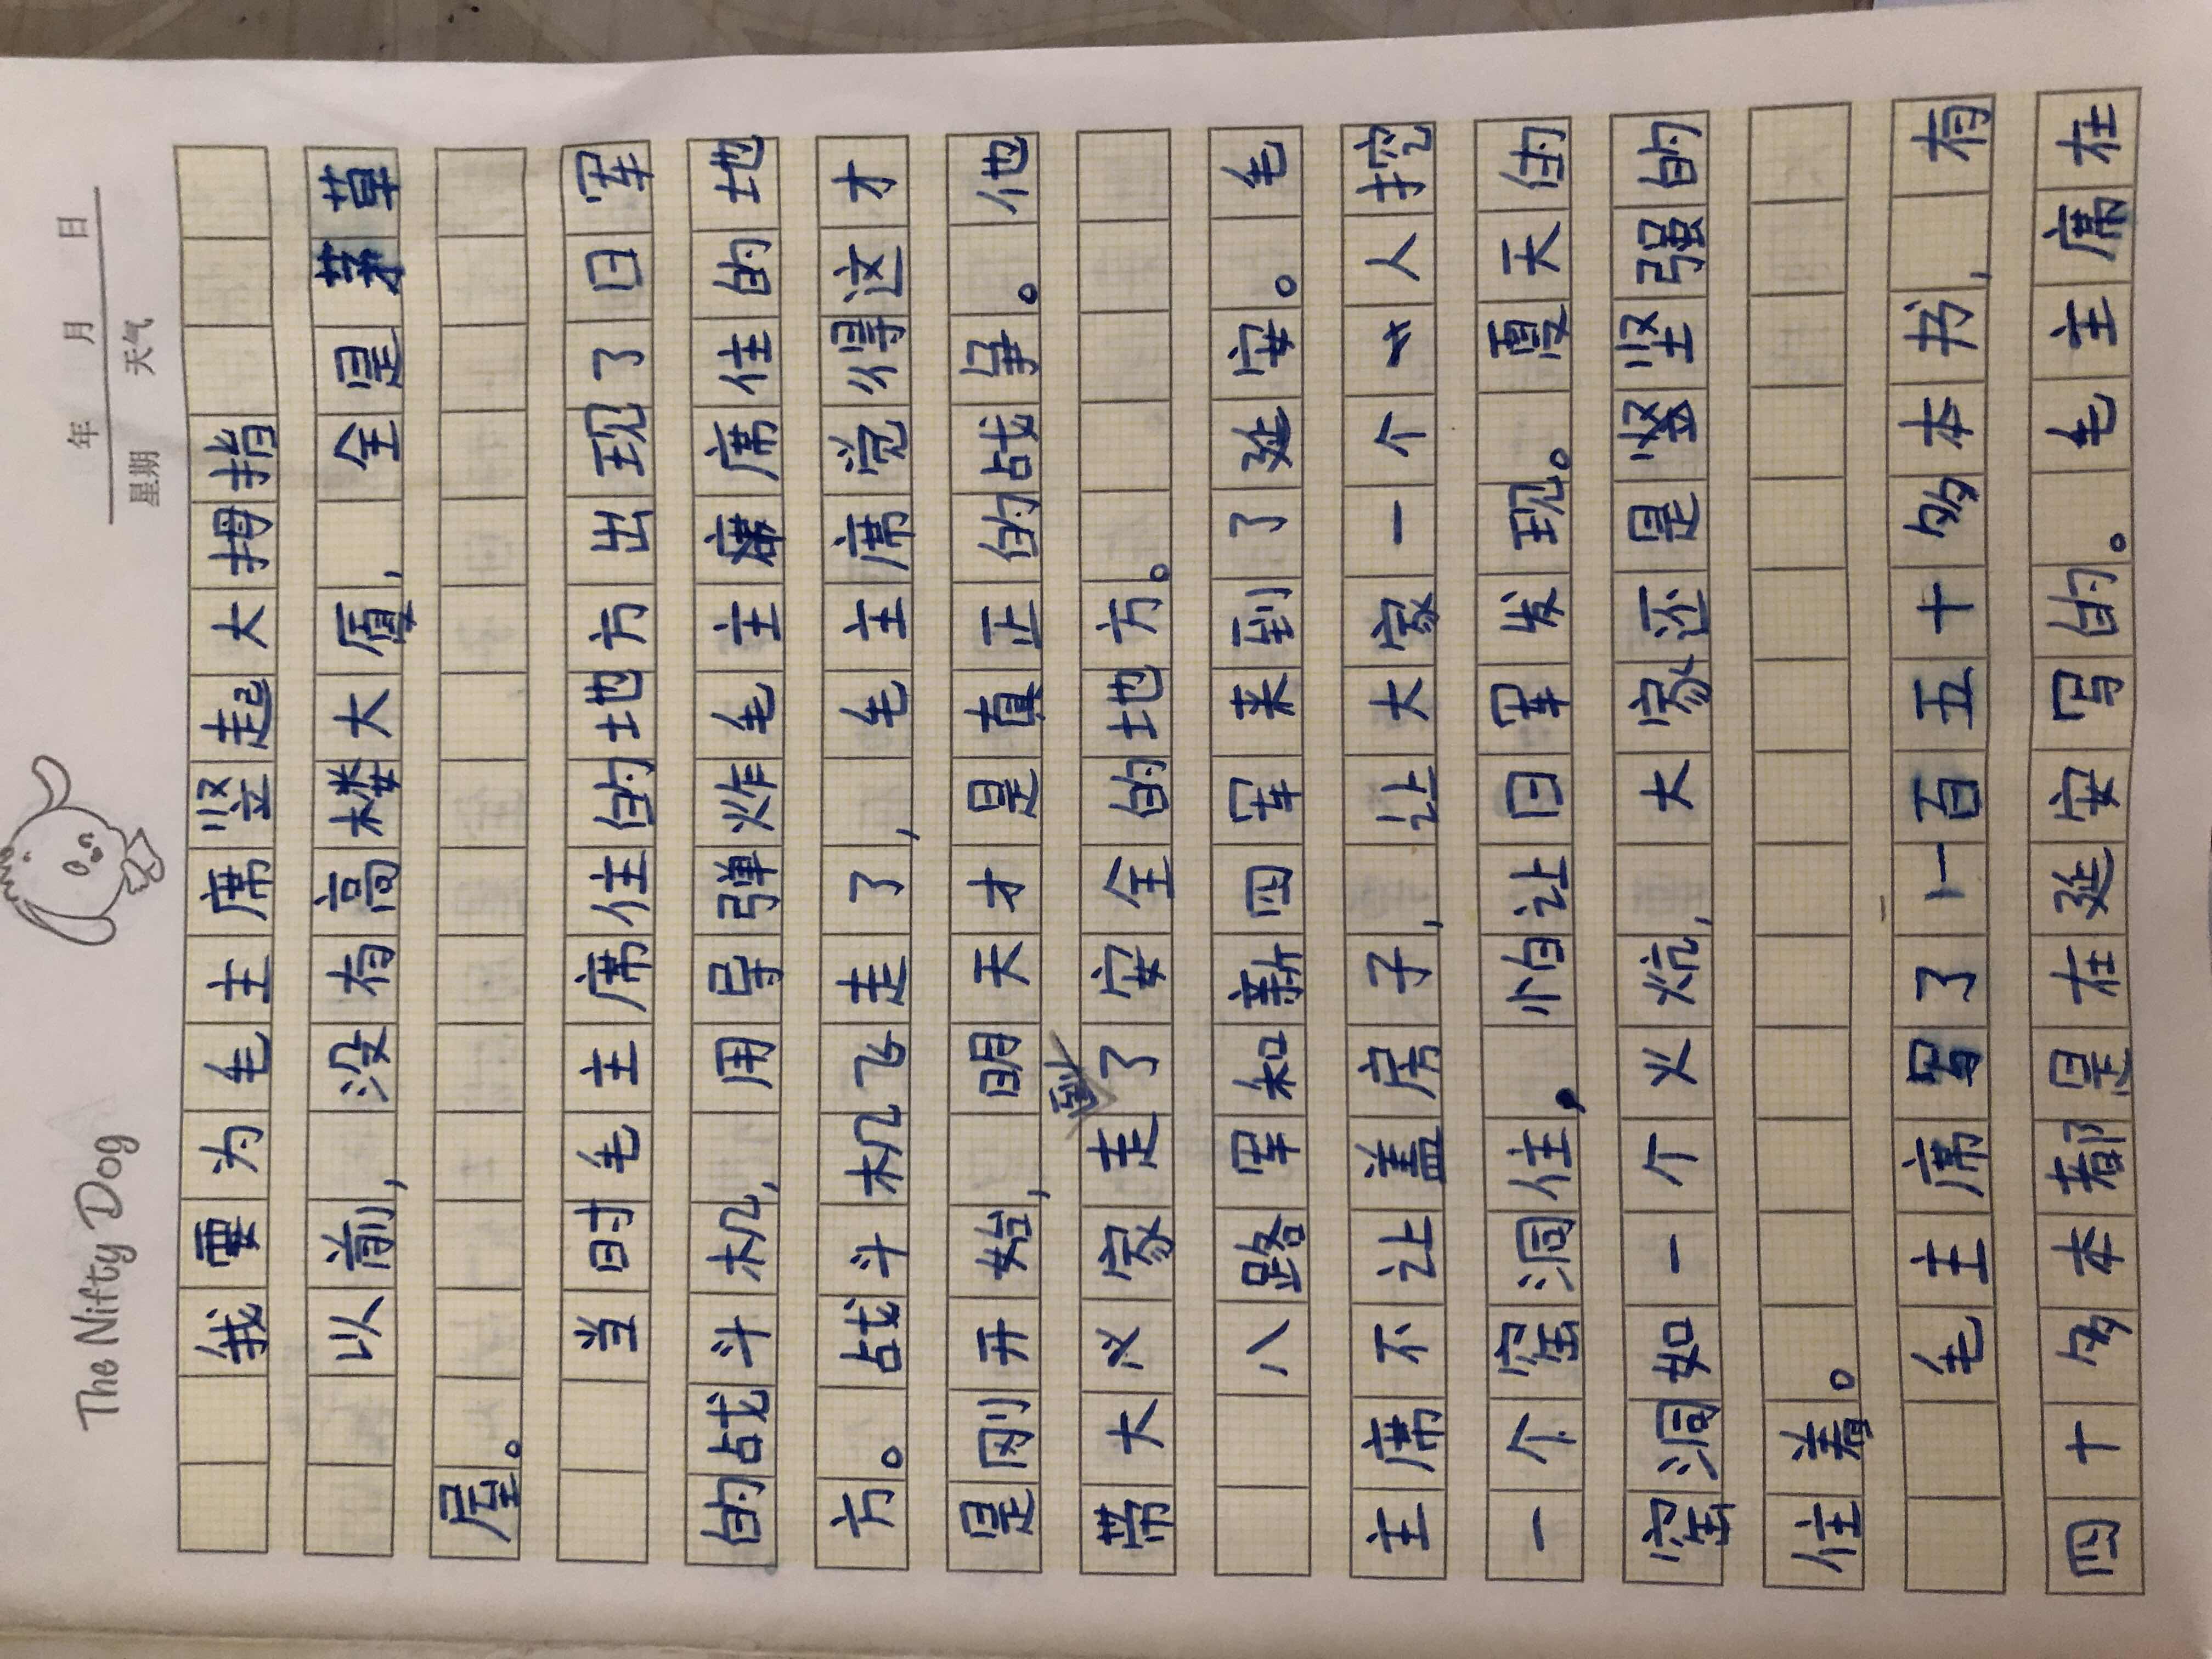 The Nifty Dog
年 月 日
星期 天气
我要为毛主席竖起大拇指
以前,没有高楼大厦,全是茅草
屋。
当时毛主席住的地方出现了日军
的战斗机,用导弹炸毛主席席住的地
方。战斗机飞走了,毛主席觉得这才
是刚开始,明天才是真正的战争。他
带大家走到了安全的地方。
八路军和新四军来到了延安。毛
主席不让盖房子,让大家一个人挖
一个窑洞住,怕让日军发现。夏天的
窑洞如一个火炕,大家还是坚强的
住着。
毛主席写了一百五十多本书,有
四十多本都是在延安写的。毛主席在